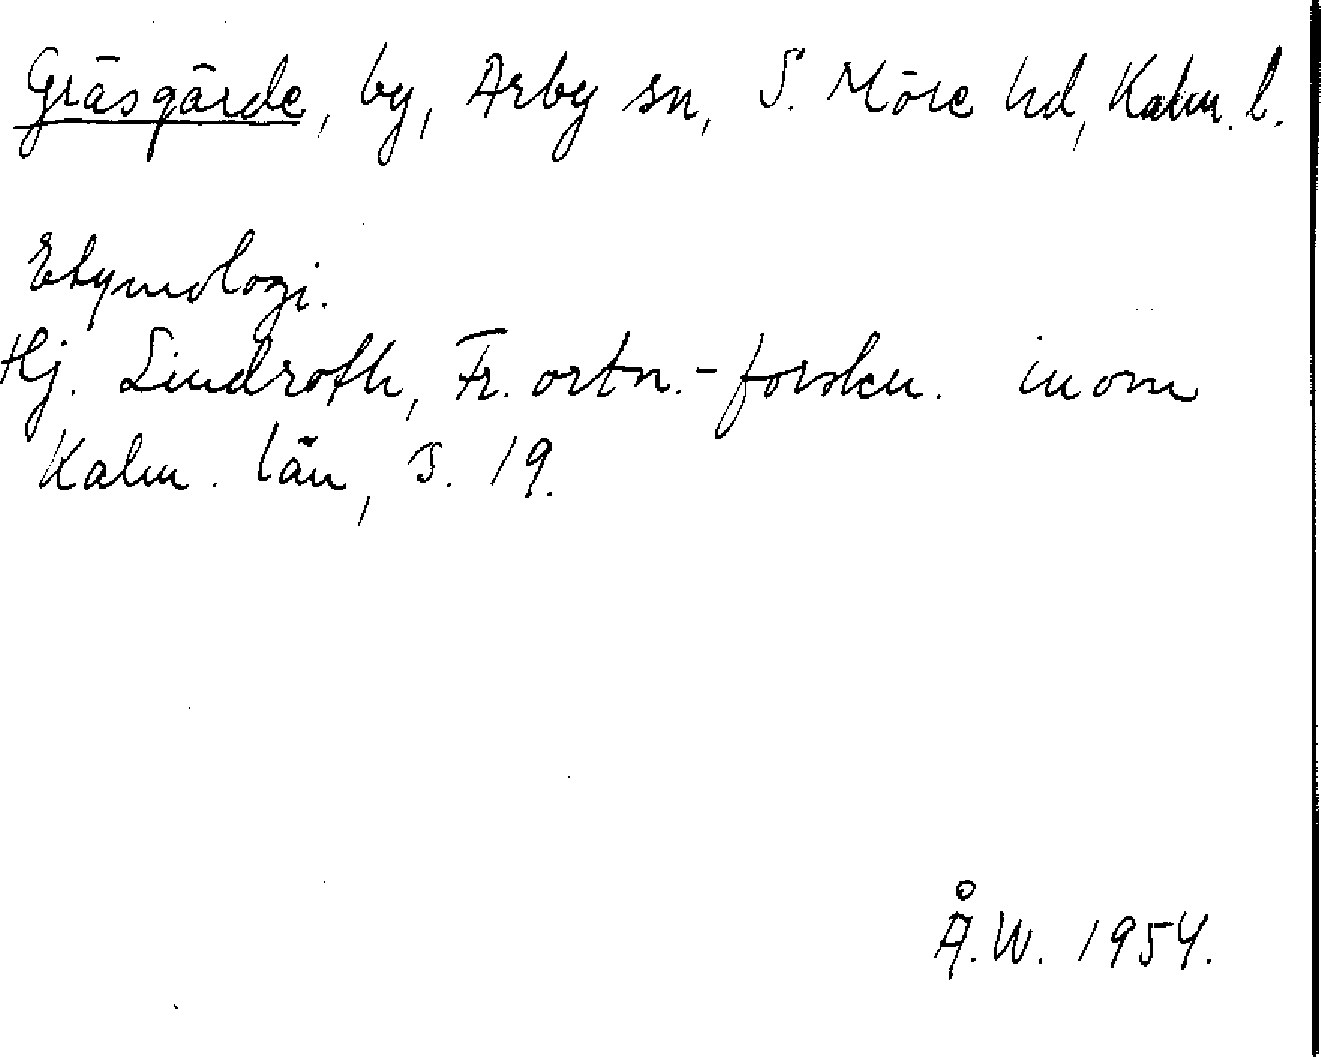 Gräsgärde, by, Arby sn, S. Möre hd, Kalm. l.
Etymologi.
Hj. Lindroth, Fr. ortn.-forskn. inom
Kalm. län, s. 19.
Å.W. 1954.